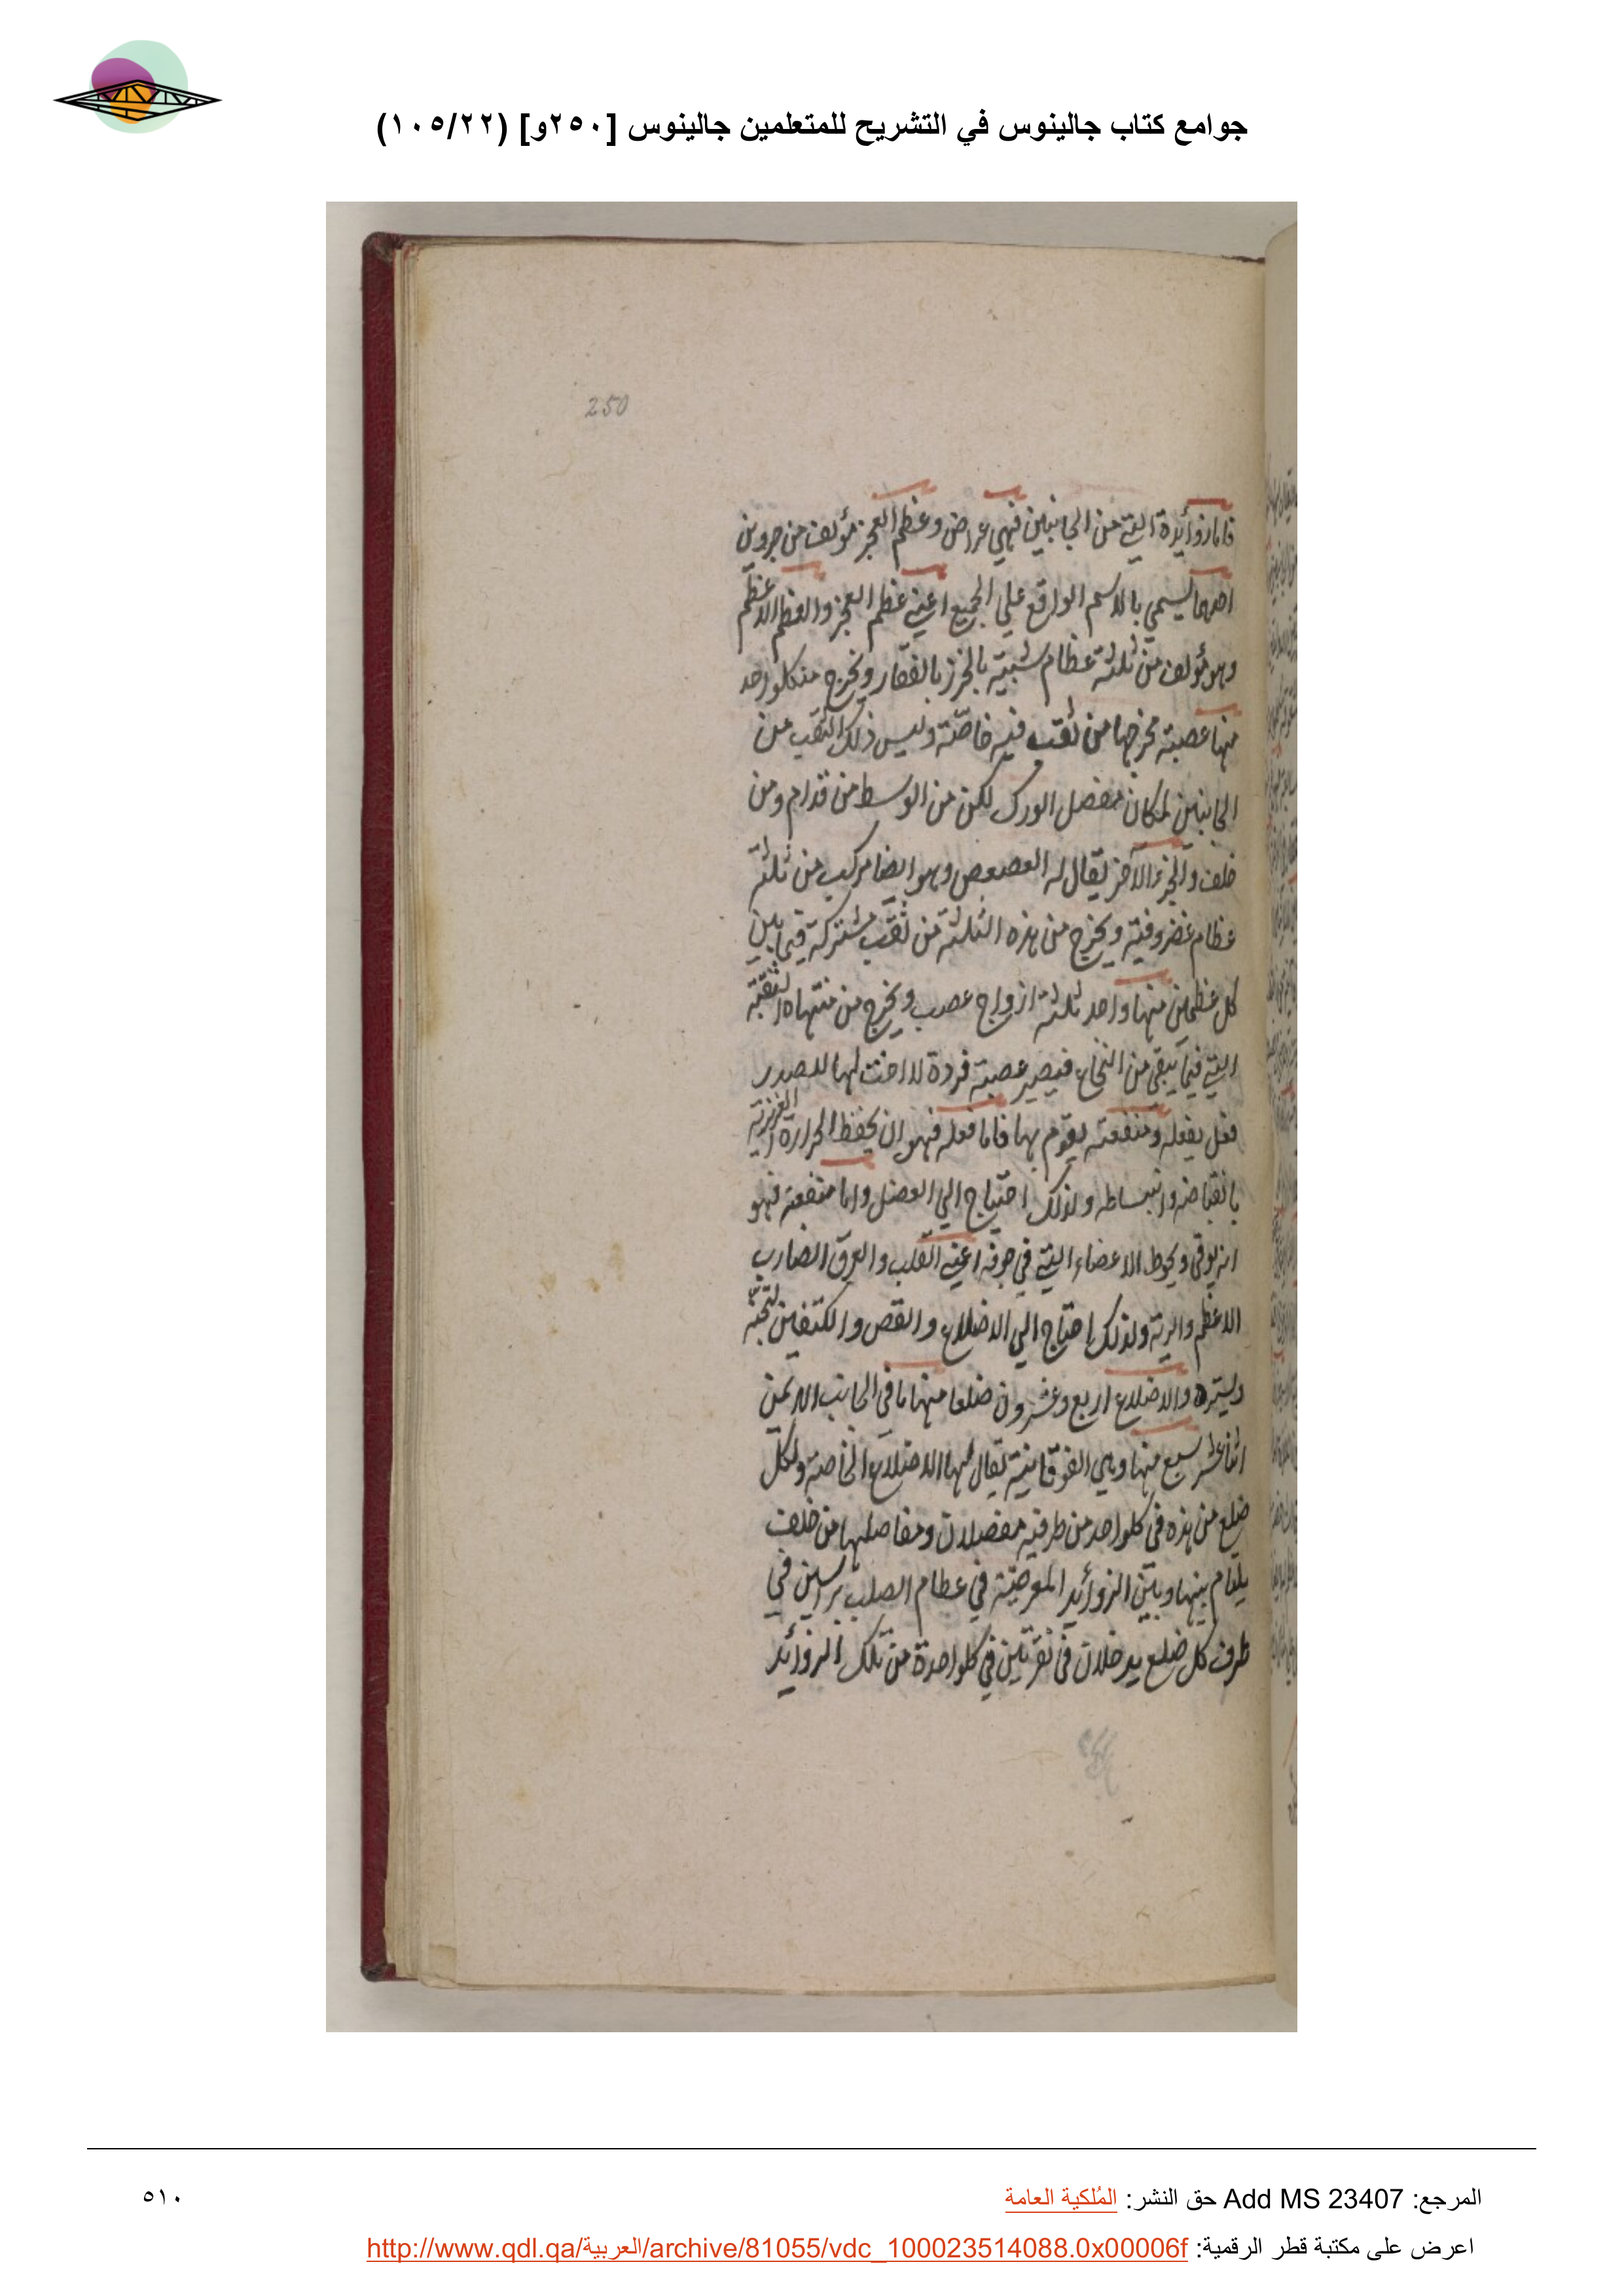 جوامع كتاب جالينوس في التشريح للمتعلمين جالينوس [٢٥٠و] (١٠٥/٢٢)
250
فاما زوائده التي من الجانبين فهي عراض وعظم العجز مؤلف من جزوين
احدهما يسمي بالاسم الواقع علي الجميع اعني عظم العجز والعظم الاعظم
وهو مؤلف من ثلثة عظام شبيه بالخرز بالفقار ويخرج من كلواحد
منها عصبة مخرجها من ثقب فيه خاصة وليس ذلك الثقب من
الجانبين لمكان مفصل الورك لكن من الوسط من قدام ومن
خلف والجزء الآخر يقال له العصعص وهو ايضا مركب من ثلثة
عظام غضروفية ويخرج من هذه الثلثة من ثقب مشتركة فيما بين
كل عظمين منها واحد ثلثة ازواج عصب ويخرج من منتهاه الثقبة
التي فيما يبقى من النخاع فيصير عصبة فردة لا اخت لها للصدر
فعل يفعله ومنفعة يقوم بها فاما فعله فهو ان يحفظ الحرارة الغريزية
بانقباضه وانبساطه ولذلك احتياج الي العضل واما منفعته فهو
انه يوقى ويحوط الاعضاء التي في جوفه اعني القلب والعرق الضارب
الاعظم والرية ولذلك احتاج الي الاضلاع والقص والكتفين لتجنه
وليستره والاضلاع اربع وعشرون ضلعا منها ما في الجانب الايمن
اثنا عشر سبع منها وهي الفوقانية يقال لها الاضلاع الخاصة ولكل
ضلع من هذه في كلواحد من طرفيه مفصلان ومفاصلها من خلف
يلتام بينها وبين الزوائد المعرضة في عظام الصلب براسين في
طرف كل ضلع يدخلان في نقرتين في كلواحدة من تلك الزوائد
المرجع: Add MS 23407 حق النشر: المُلكية العامة
٥١٠
اعرض على مكتبة قطر الرقمية: http://www.qdl.qa/العربية/archive/81055/vdc_100023514088.0x00006f